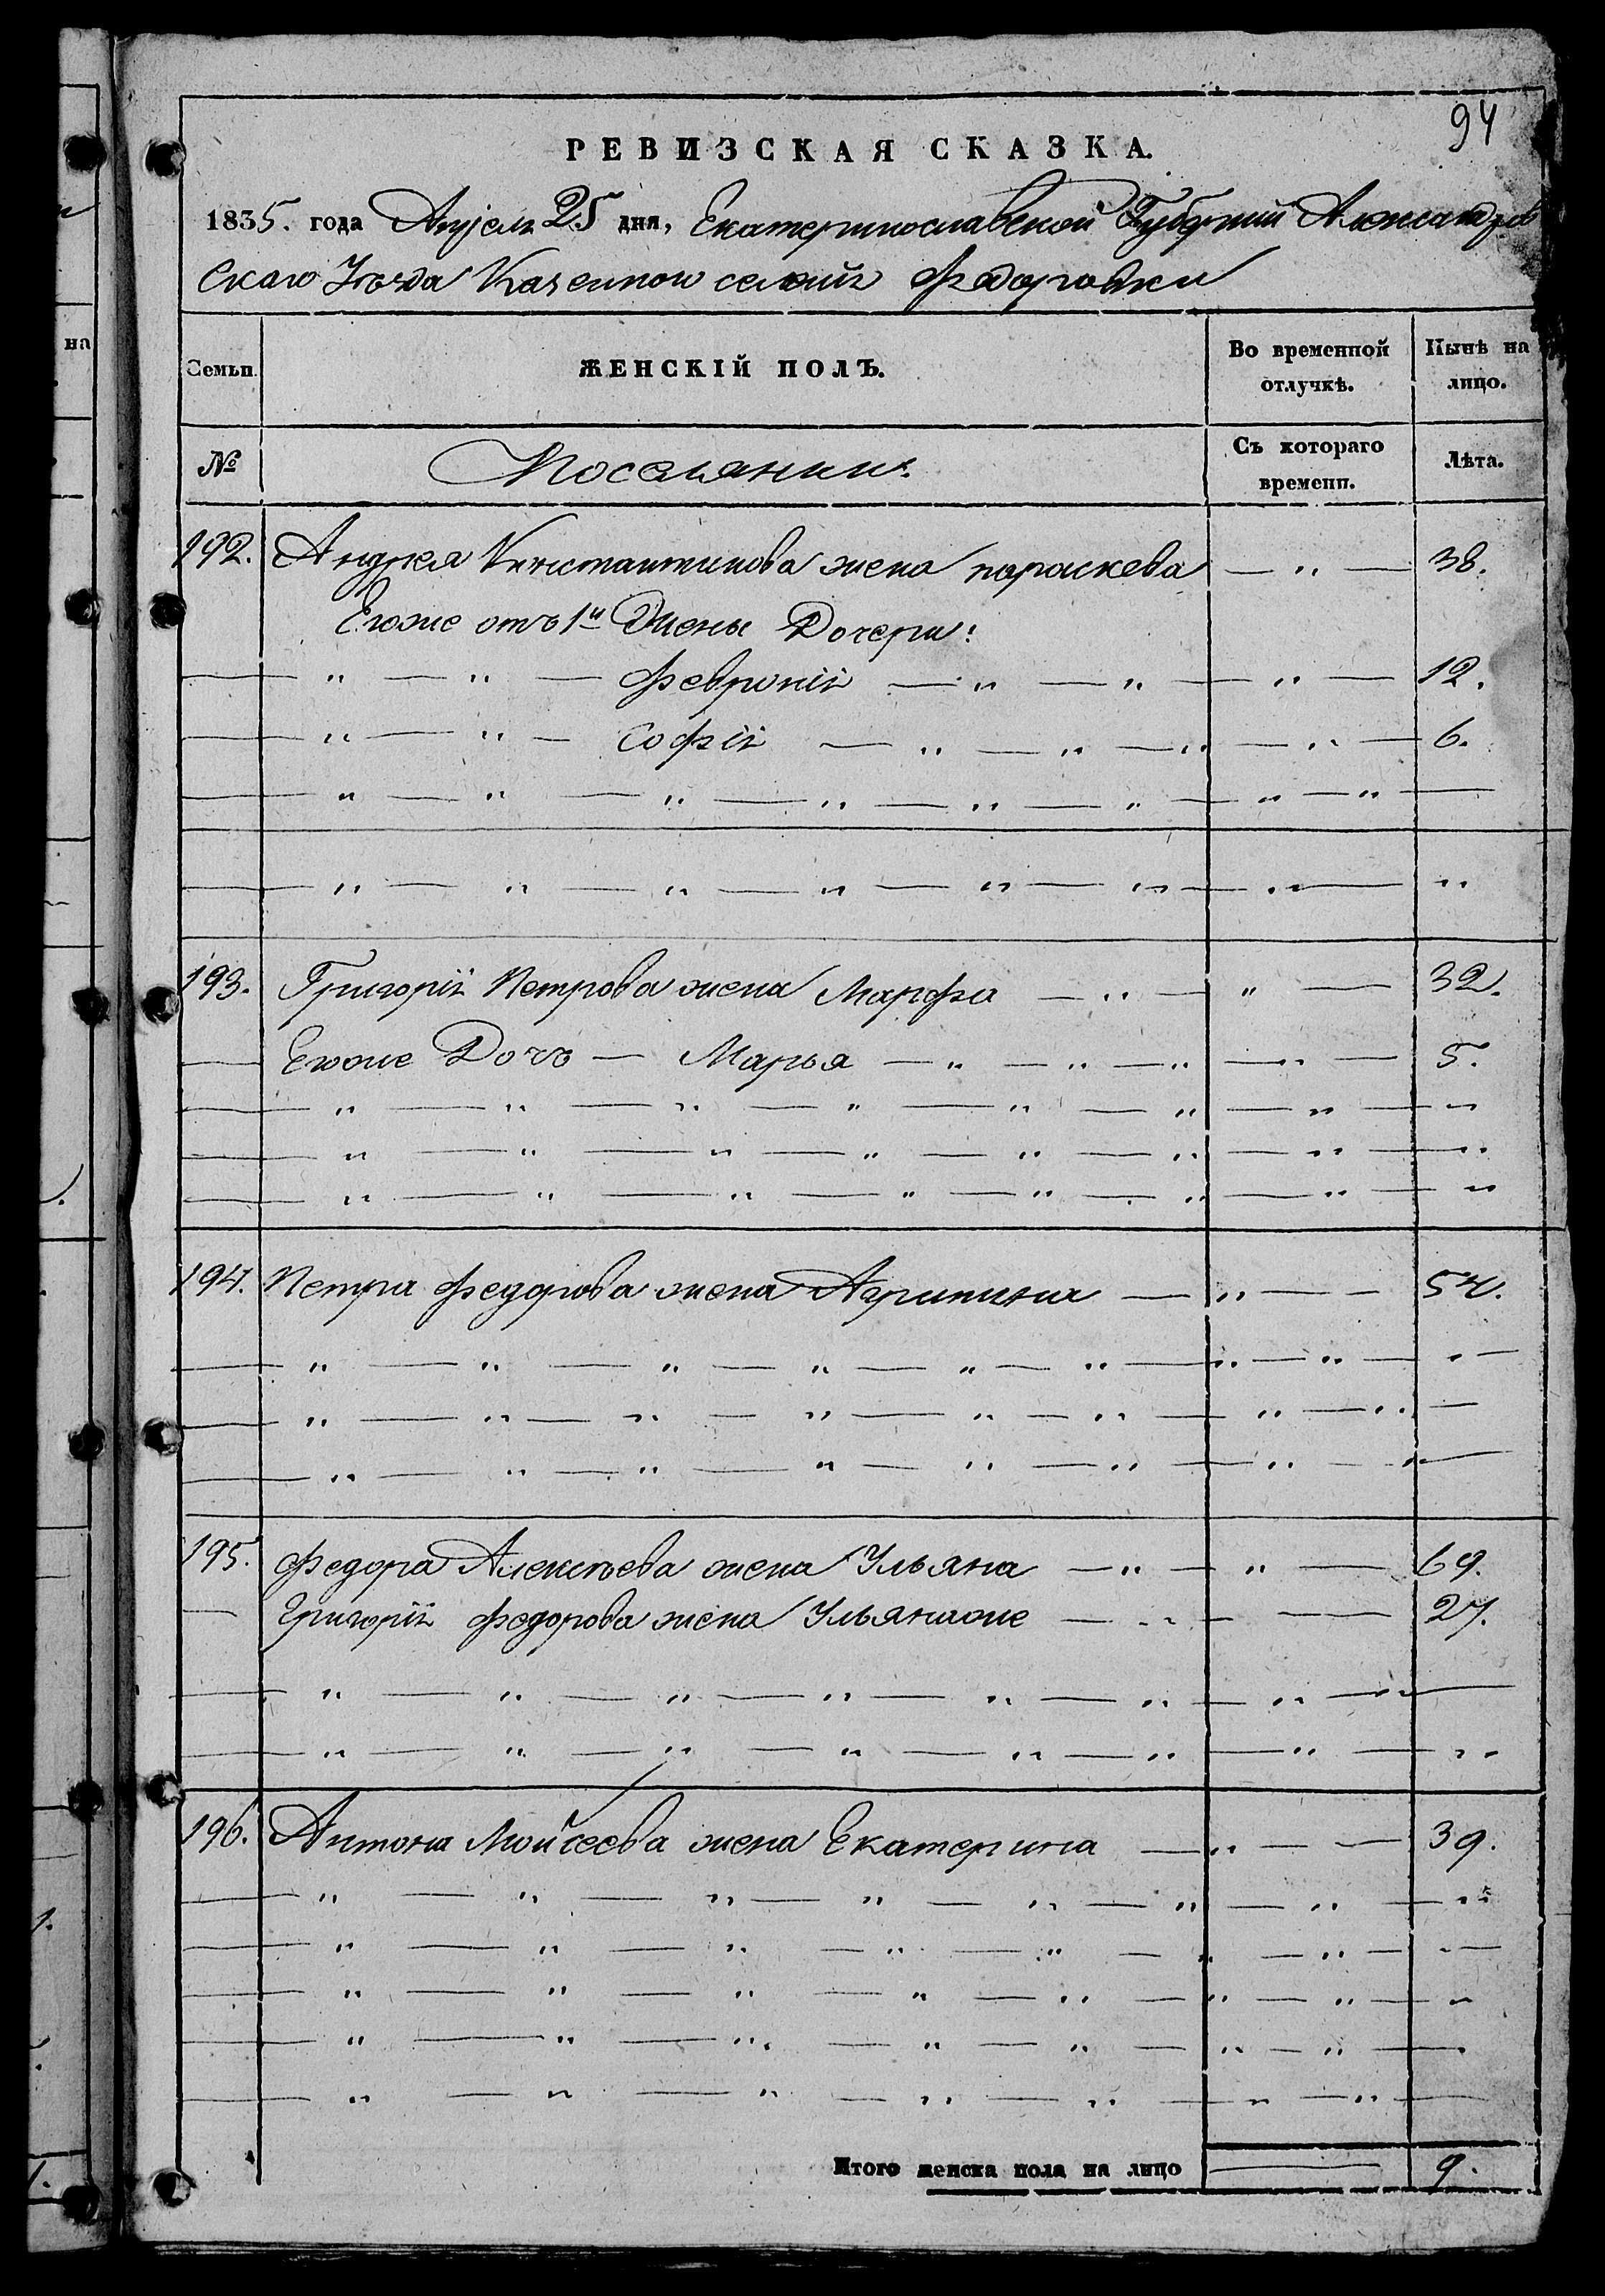 94
РЕВИЗСКАЯ СКАЗКА.
1835. года Апреля 25 дня, Екатеринославской Губернии Александров
скаго Уезда Казенной селений Федоровки
Семьи. ЖЕНСКІЙ ПОЛЪ. Во временной отлучкѣ. Нынѣ на лицо.
№ Поселянки. Съ котораго времени. Лѣта.
192. Андрея Константинова жена параскева — „ — 38.
Егоже отъ 1й Жены Дочери:
— „ — „ — февронія — „ — „ — „ — 12.
— „ — „ — Софія — „ — „ — „ — „ — 6.
193. Григорія Петрова жена Марфа — „ — „ — 32.
— Егоже Дочь — Марья — „ — „ — „ — „ — 5.
194. Петра федорова жена Агрипина — „ — — 54.
195. федора Алексѣева жена Ульяна — „ — „ — 69.
— Григорія федорова жена Ульянаже — „ — — 27.
196. Антона Мойсеева жена Екатерина — „ — — 39.
Итого женска пола на лицо — 9.
на